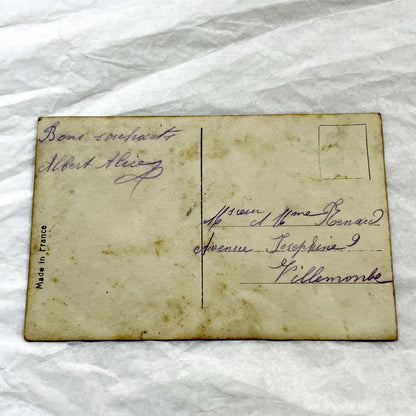 Bons souhaits
Albert Alice
Made in France
Msieur & Mme Renard
Avenue Josephine 9
Villemomble